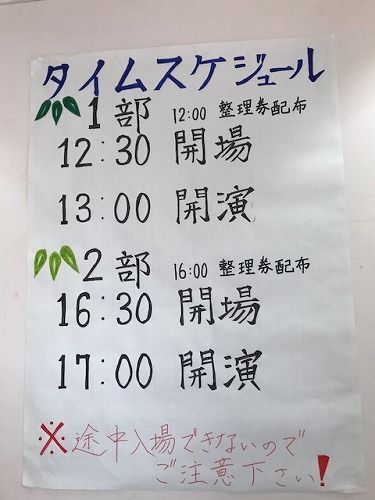 タイムスケジュール
1部 12:00 整理券配布
12:30 開場
13:00 開演
2部 16:00 整理券配布
16:30 開場
17:00 開演
※途中入場できないので
ご注意下さい!